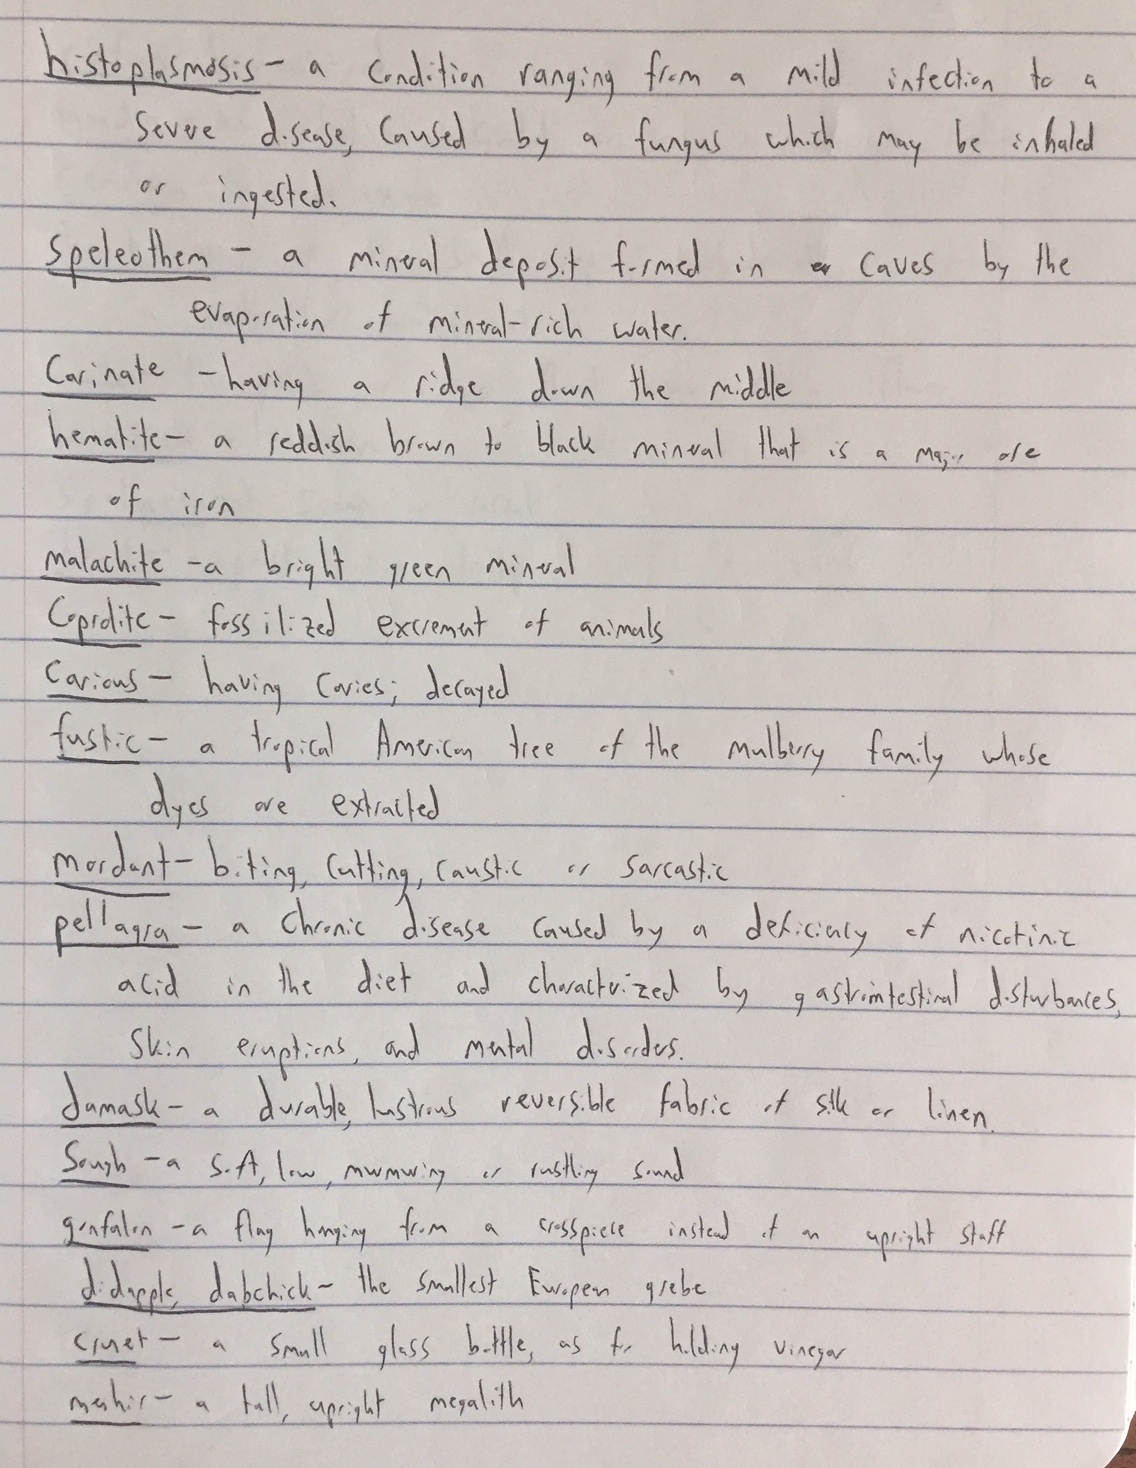 histoplasmosis - a condition ranging from a mild infection to a
severe disease, caused by a fungus which may be inhaled
or ingested.
speleothem - a mineral deposit formed in caves by the
evaporation of mineral-rich water.
carinate - having a ridge down the middle
hematite - a reddish brown to black mineral that is a major ore
of iron
malachite - a bright green mineral
coprolite - fossilized excrement of animals
carious - having caries; decayed
fustic - a tropical American tree of the mulberry family whose
dyes are extracted
mordant - biting, cutting, caustic or sarcastic
pellagra - a chronic disease caused by a deficiency of nicotinic
acid in the diet and characterized by gastrointestinal disturbances,
skin eruptions, and mental disorders.
damask - a durable, lustrous reversible fabric of silk or linen.
sough - a soft, low, murmuring or rustling sound
gonfalon - a flag hanging from a crosspiece instead of an upright staff
didapple, dabchick - the smallest European grebe
cruet - a small glass bottle, as for holding vinegar
menhir - a tall, upright megalith